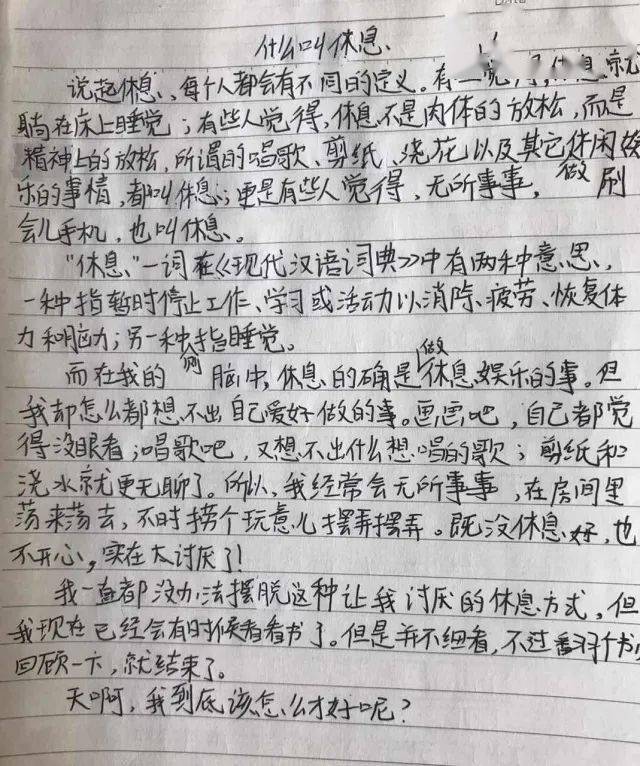 什么叫休息
说起休息,每个人都会有不同的定义。有 觉 休息就
躺在床上睡觉;有些人觉得,休息不是肉体的放松,而是
精神上的放松,所谓的唱歌、剪纸、浇花以及其它休闲娱
乐的事情,都叫休息;更是有些人觉得,无所事事,做 刷
会儿手机,也叫休息。
“休息”一词在《现代汉语词典》中有两种意思,
一种指暂时停止工作、学习或活动以消除、疲劳、恢复体
力和脑力;另一种指睡觉。
而在我的 脑中,休息的确是做休息娱乐的事。但
我却怎么都想不出自己爱好做的事。画画吧,自己都觉
得没眼看;唱歌吧,又想不出什么想唱的歌;剪纸和
浇水就更无聊了。所以,我经常会无所事事,在房间里
荡来荡去,不时捞个玩意儿摆弄摆弄。既没休息好,也
不开心,实在太讨厌了!
我一直都没办法摆脱这种让我讨厌的休息方式,但
我现在已经会有时候看看书了。但是并不细看,不过翻个书,
回顾一下,就结束了。
天啊,我到底该怎么才好呢?